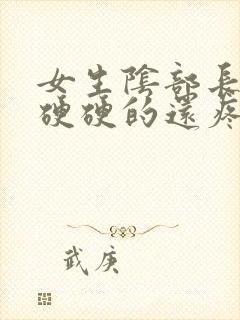 女生陰部長
硬硬的還疼
武庚